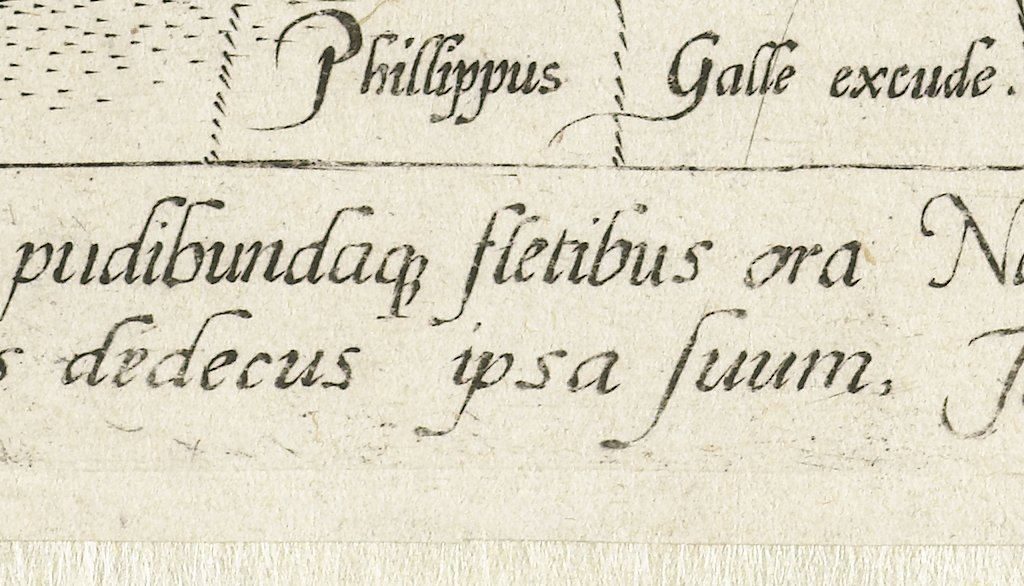 Phillippus Galle excude.
pudibundaq; fletibus ora
dedecus ipsa suum,